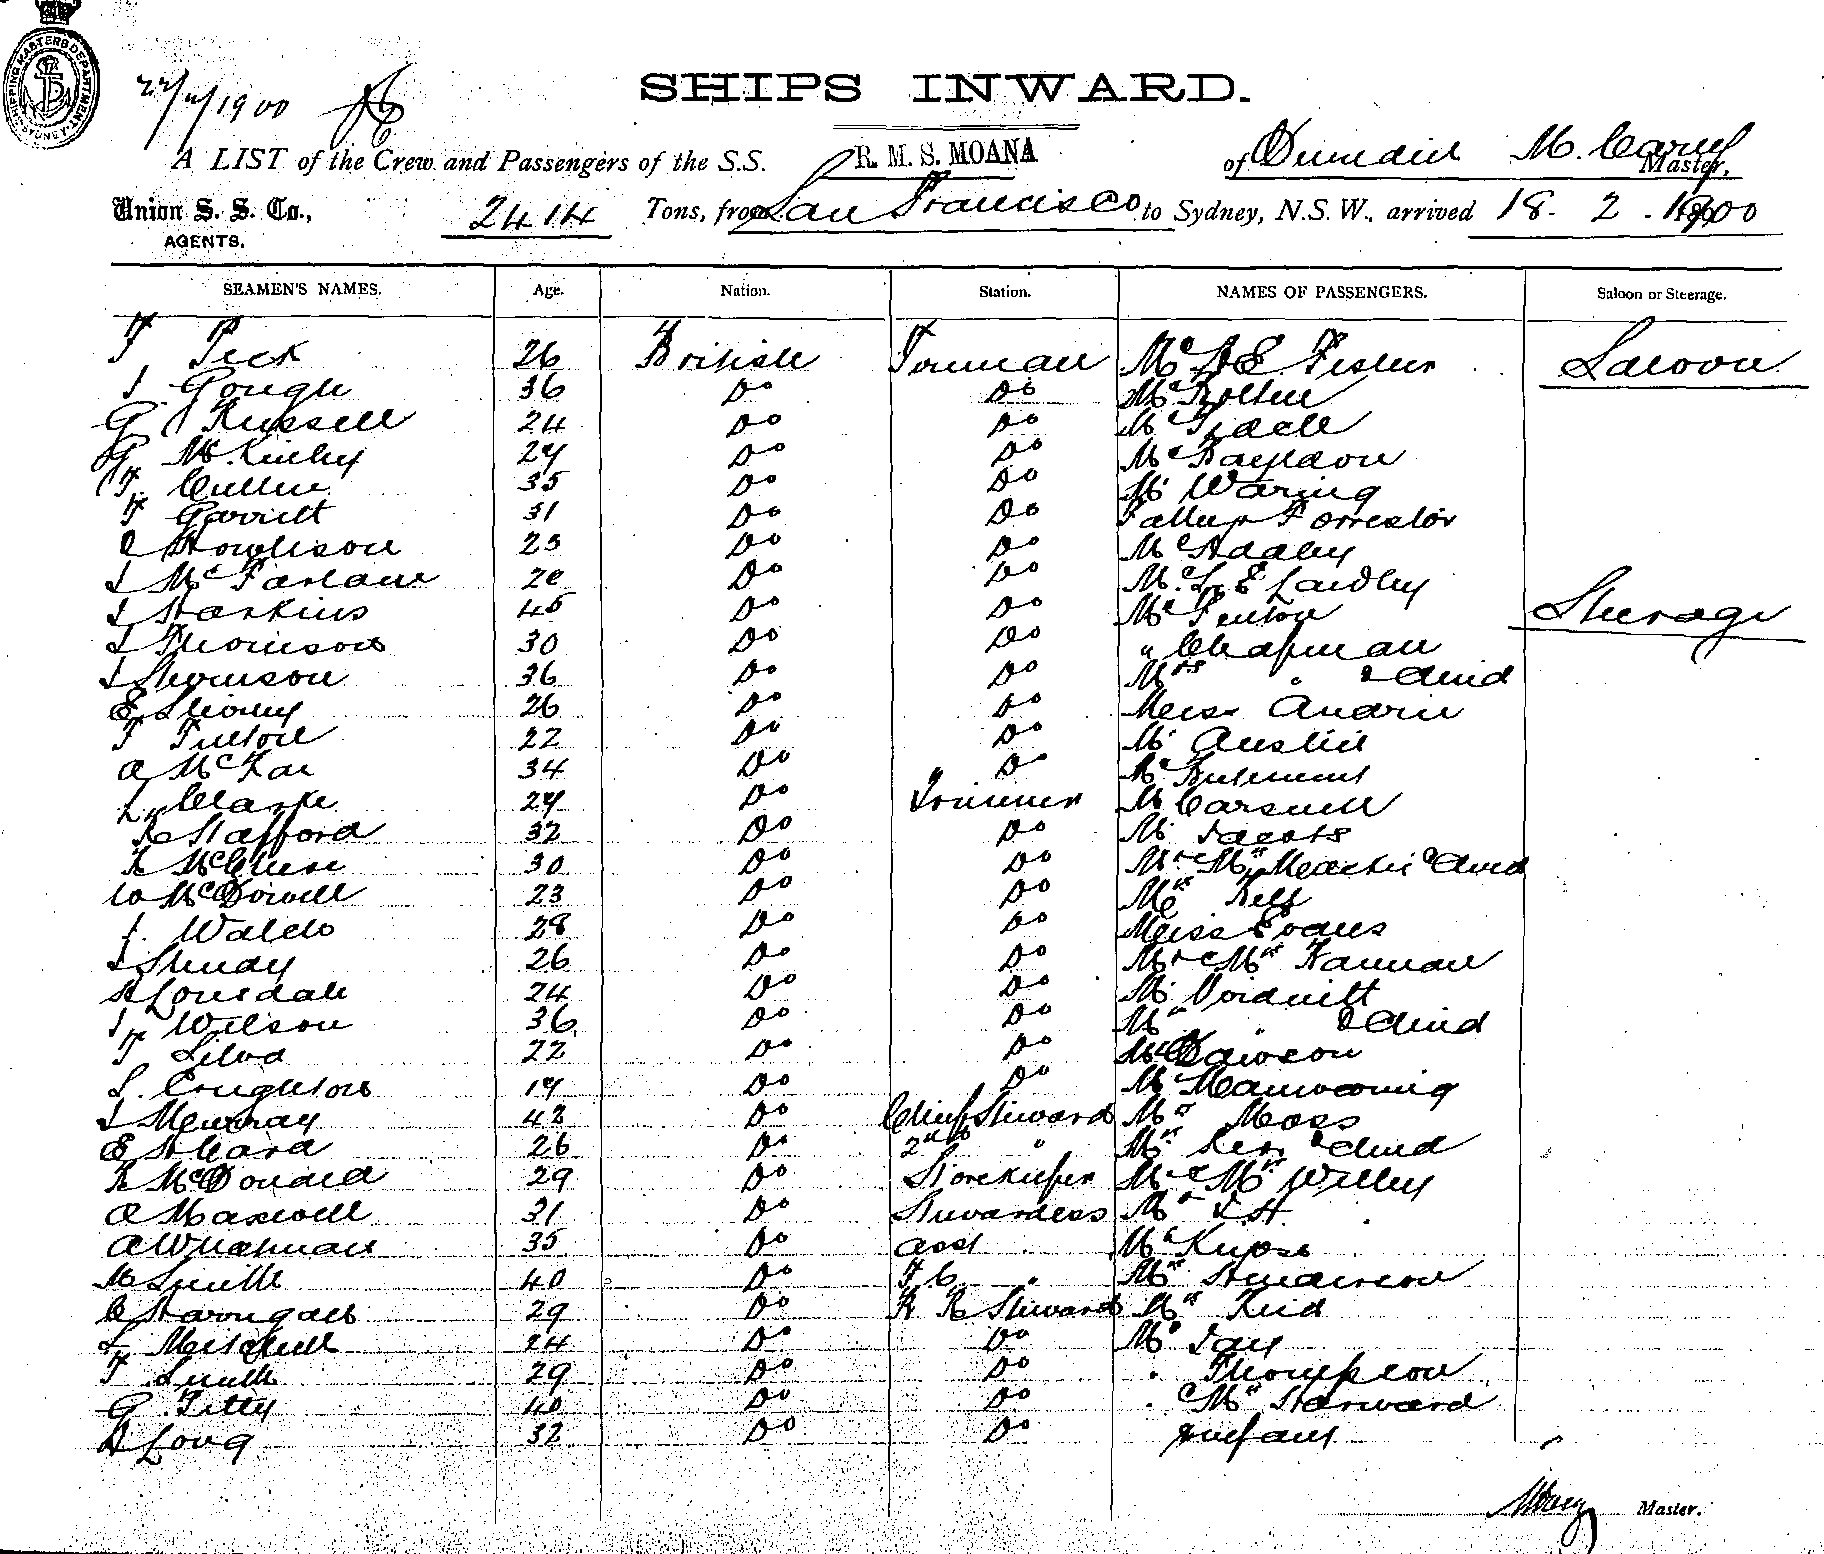 SHIPPING MASTERS DEPARTMENT SYDNEY
22/2/1900
SHIPS INWARD.
A LIST of the Crew and Passengers of the S.S. R. M. S. MOANA of Dunedin M. Carey Master,
Union S. S. Co., AGENTS. 2414 Tons, from San Francisco to Sydney, N.S.W., arrived 18. 2. 1900
SEAMEN'S NAMES. Age. Nation. Station. NAMES OF PASSENGERS. Saloon or Steerage.
F Peck 26 British Fireman Mr Fisher Saloon
J. Gough 36 Do Do Mr Bolton
G Russell 24 Do Do Mr
G McKinley 27 Do Do Mr
T. Cullen 35 Do Do Mr Waring
F Garrett 31 Do Do Father Forrester
Do Do Mr
J McFarlane Do Do Mr L E Laidley
J Harkins 45 Do Do Mr Fenton Steerage
J Thomson 30 Do Do " Chapman
J Thomson 36 Do Do Mrs " & Child
E 26 Do Do Miss Andrew
T Fulton 22 Do Do Mr Austin
A McKay 34 Do Do Mr
L Clarke 27 Do Trimmer Mr Carswell
R Stafford 32 Do Do Mr Jacobs
R McClure 30 Do Do Mr & Mrs & Child
W McDowell 23 Do Do Mrs
J. Waldo 28 Do Do Miss Evans
J 26 Do Do Mr & Mrs
H Lonsdale 24 Do Do Mr
J. Wilson 36 Do Do Mrs " & Child
F Silva 22 Do Do Mr Dawson
Do Do Mr
J Murray 42 Do Chief Steward Mrs Moss
E 26 Do 2nd " Mrs & Child
R McDonald 29 Do Storekeeper Mr & Mrs Willey
A Maxwell 31 Do Stewardess Mr
A Whatman 35 Do Asst " Mr
M Smith 40 Do F C " Mrs Henderson
29 Do Steward Mrs Reid
L Mitchell 24 Do Do Mr Jay
F Smith 29 Do Do " Thompson
G 40 Do Do " & Mrs Harward
H Long 32 Do Do & infant
M Carey Master.